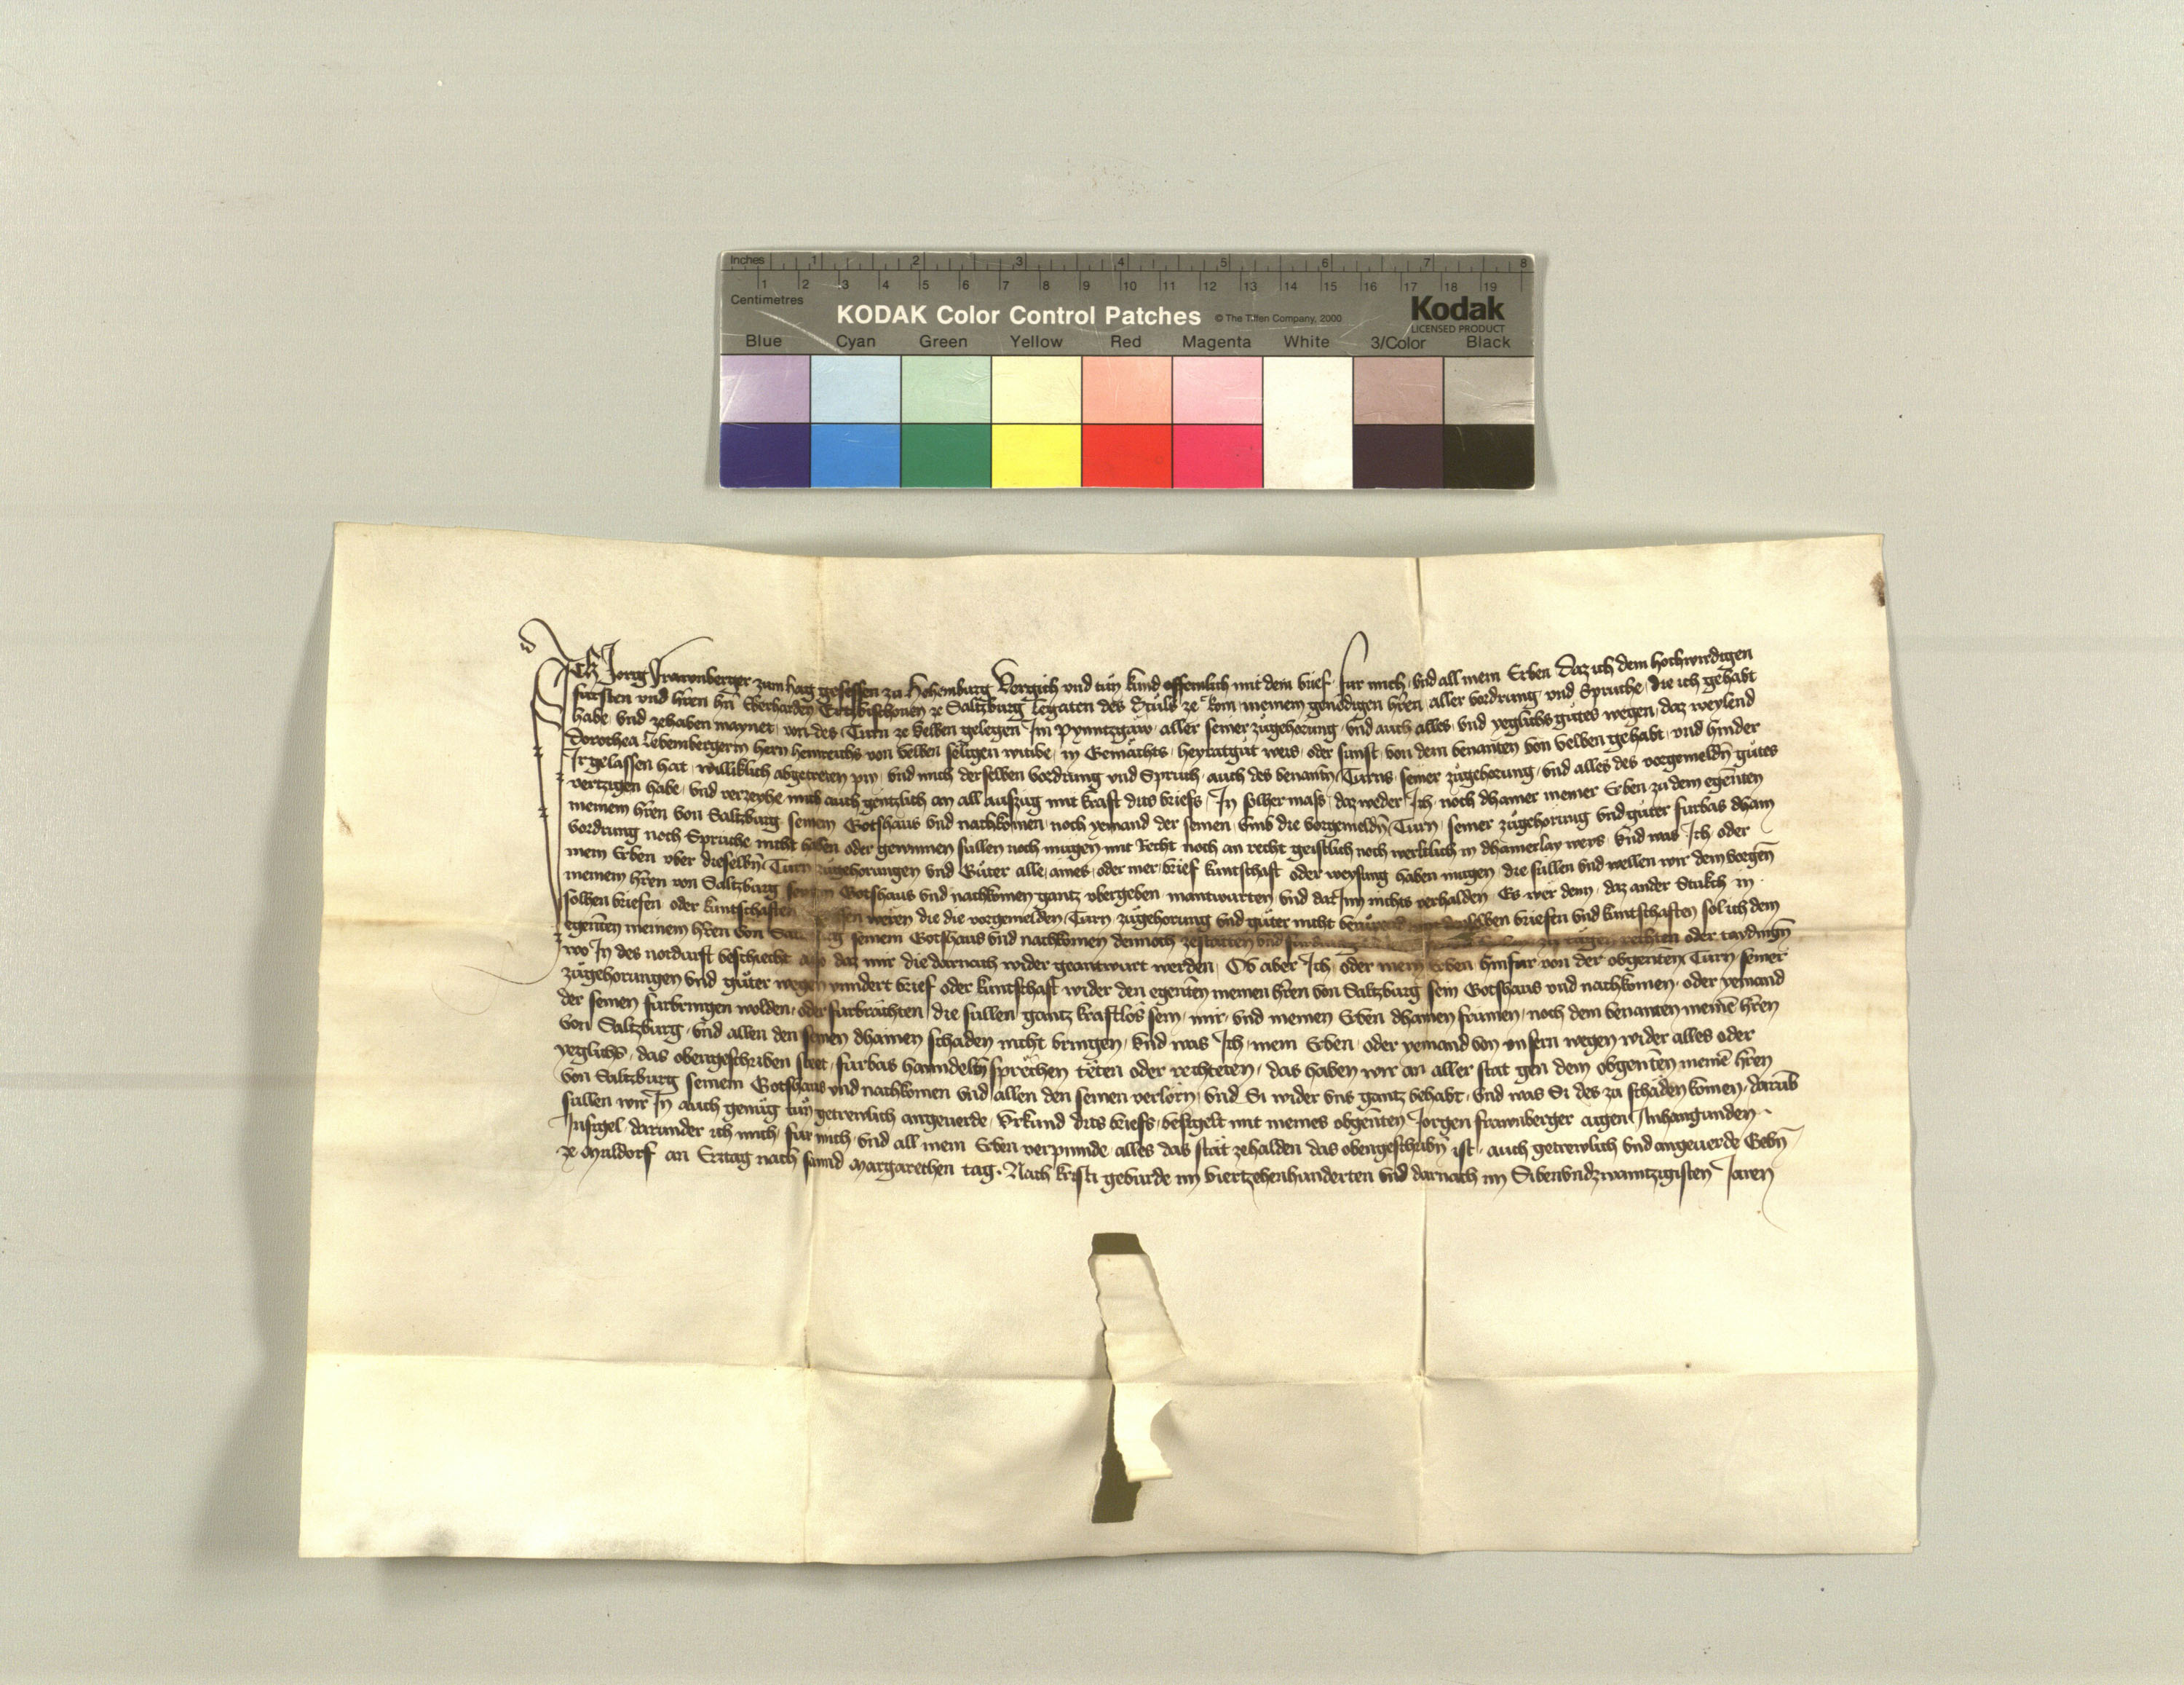 Inches 1 2 3 4 5 6 7 8
Centimetres 1 2 3 4 5 6 7 8 9 10 11 12 13 14 15 16 17 18 19
KODAK Color Control Patches © The Tiffen Company, 2000 Kodak
LICENSED PRODUCT
Blue Cyan Green Yellow Red Magenta White 3/Color Black
Ich Jorig Frawnberger zum hag gesessen zu Hohemburg Vergich vnd tun kund offemlich mit dem brief fur mich vnd all mein Erben daz ich dem hochwirdigen
fursten vnd hr̄en hn̄ Eberharden Ertzbischouen ze Saltzburg Legaten des Stuls ze Rom meinem genedigen hr̄en aller vordrung vnd Spruche die ich gehabt
habe vnd zehaben maynet von des Turn ze velben gelegen Im pynntzgaw aller seiner zugehorung vnd auch alles vnd yeglichs gutes wegen daz weylend
Dorothea Lebembergerin hern heinreichs von velben seligen witibe in Gemachts heyratgut weis oder sunst von dem benanten von velben gehabt vnd hinder
Ir gelassen hat williklich abgetreten pin vnd mich derselben vordrung vnd Spruch auch des benantn̄ Turns seiner zugehorung vnd alles des vorgemeldn̄ gutes
vertzigen habe vnd verzeyhe mich auch gentzlich an all aufzug mit kraft dits briefs In solher mass daz weder Ich noch dhainer meiner Erben zu dem egen̄ten
meinem hr̄en von Saltzburg seinem Gotshaus vnd nachkomen noch yemand der seinen vmb die vorgemeldn̄ Turn seiner zugehorung vnd guter furbas dhain
vordrung noch Spruche nicht haben oder gewinnen sullen noch mugen mit Recht noch an recht geistlich noch werltlich in dhainerlay weis vnd was Ich oder
mein Erben vber dieselbn̄ Turn zugehorungen vnd Guter alle ains oder mer brief kuntschaft oder weysung haben mugen die sullen vnd wellen wir dem vorgen̄
meinem hr̄en von Saltzburg seinem Gotshaus vnd nachkomen gantz vbergeben inantwurten vnd dar Inn nichts verhalden Es wer denn daz ander Stukch in
solhen briefen oder kuntschaften weren die die vorgemelden Turn zugehorung vnd guter nicht denselben briefen vnd kuntschaften sol ich dem
egen̄ten meinem hr̄en von seinem Gotshaus vnd nachkomen dennoch zestatten vnd zu tagen rechten oder taydingn̄
wo In des notdurft beschiecht also daz mir die darnach wider geantwurt werden Ob aber Ich oder mein Erben hinfur von der obgen̄ten Turn seiner
zugehorungen vnd guter wegen ynndert brief oder kuntschaft wider den egen̄ten meinen hr̄en von Saltzburg sein Gotshaus vnd nachkomen oder yemand
der seinen furbringen wolden oder furbrachten die sullen gantz kraftlos sein mir vnd meinen Erben dhainen frumen noch dem benanten meinē hr̄en
von Saltzburg vnd allen den seinen dhainen schaden nicht bringen vnd was Ich mein Erben oder yemand von vnsern wegen wider alles oder
yeglichs das obengeschriben steet furbas hanndeln sprechen teten oder rechteten das haben wir an aller stat gen dem obgen̄ten meinē hr̄en
von Saltzburg seinem Gotshaus vnd nachkomen vnd allen den seinen verlorn vnd Si wider vns gantz behabt vnd was Si des zu schaden komen darūb
sullen wir In auch genug tun getrewlich angeuerde Vrkund dits briefs besigelt mit meines obgen̄ten Jorgen Frawnberger aigen Anhangunden
Insigel darunder ich mich fur mich vnd all mein Erben verpinnde alles das stat zehalden das obengeschribn̄ ist auch getrewlich vnd angeuerde Gebn̄
ze Muldorf an Eritag nach sannd Margarethen tag Nach kristi geburde im viertzehenhunderten vnd darnach im Sibenvndzwaintzigisten Jaren